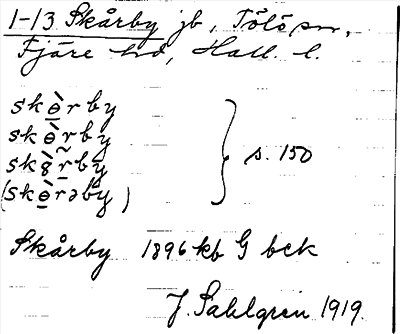 1-13 Skårby jb, Tölö sn,
Fjäre hd, Hall. l.
skɵ̀rby
skɵ̀rby
sk8̀r̃by } s. 150
(skɵ̀rəby)
Skårby 1896 kb G bck
J. Sahlgren 1919.